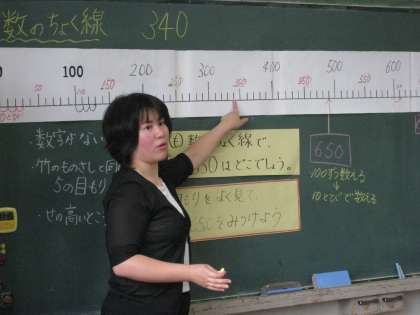 数のちょく線 340
0 50 100 150 200 250 300 350 400 450 500 550 600
数字がない
竹のものさしと同
5の目もり
・せの高いとこ
も 数のちょく線で、
はどこでしょう。
もりをよく見て、
みつけよう
650
100ずつ数える
10とびで数える